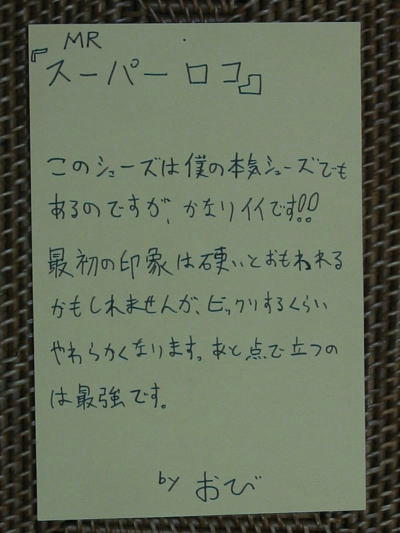 MR
『スーパーロコ』
このシューズは僕の本気シューズでも
あるのですが、かなりイイです!!
最初の印象は硬いとおもわれる
かもしれませんが、ビックリするくらい
やわらかくなります。あと点で立つの
は最強です。
by おび